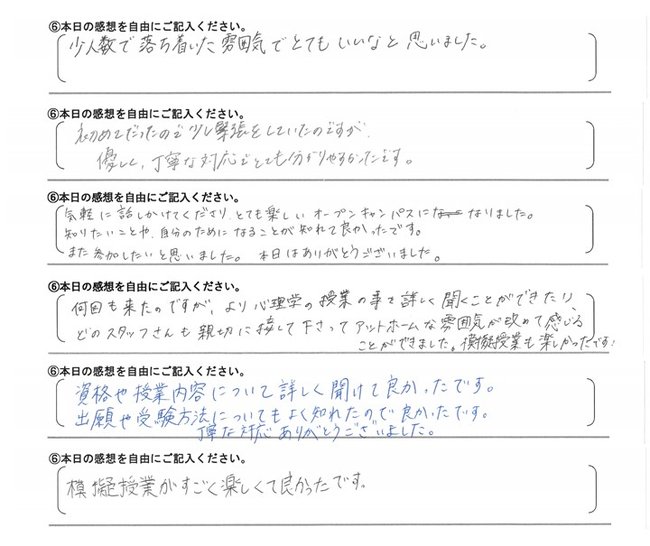 ⑥本日の感想を自由にご記入ください。
少人数で落ち着いた雰囲気でとてもいいなと思いました。
⑥本日の感想を自由にご記入ください。
初めてだったので少し緊張をしていたのですが、
優しく、丁寧な対応でとても分かりやすかったです。
⑥本日の感想を自由にご記入ください。
気軽に話しかけてくださり、とても楽しいオープンキャンパスになりました。
知りたいことや、自分のためになることが知れて良かったです。
また参加したいと思いました。 本日はありがとうございました。
⑥本日の感想を自由にご記入ください。
何回も来たのですが、より心理学の授業の事を詳しく聞くことができたり、
どのスタッフさんも親切に接して下さってアットホームな雰囲気が改めて感じる
ことができました。模擬授業も楽しかったです!
⑥本日の感想を自由にご記入ください。
資格や授業内容について詳しく聞けて良かったです。
出願や受験方法についてもよく知れたので良かったです。
丁寧な対応ありがとうございました。
⑥本日の感想を自由にご記入ください。
模擬授業がすごく楽しくて良かったです。